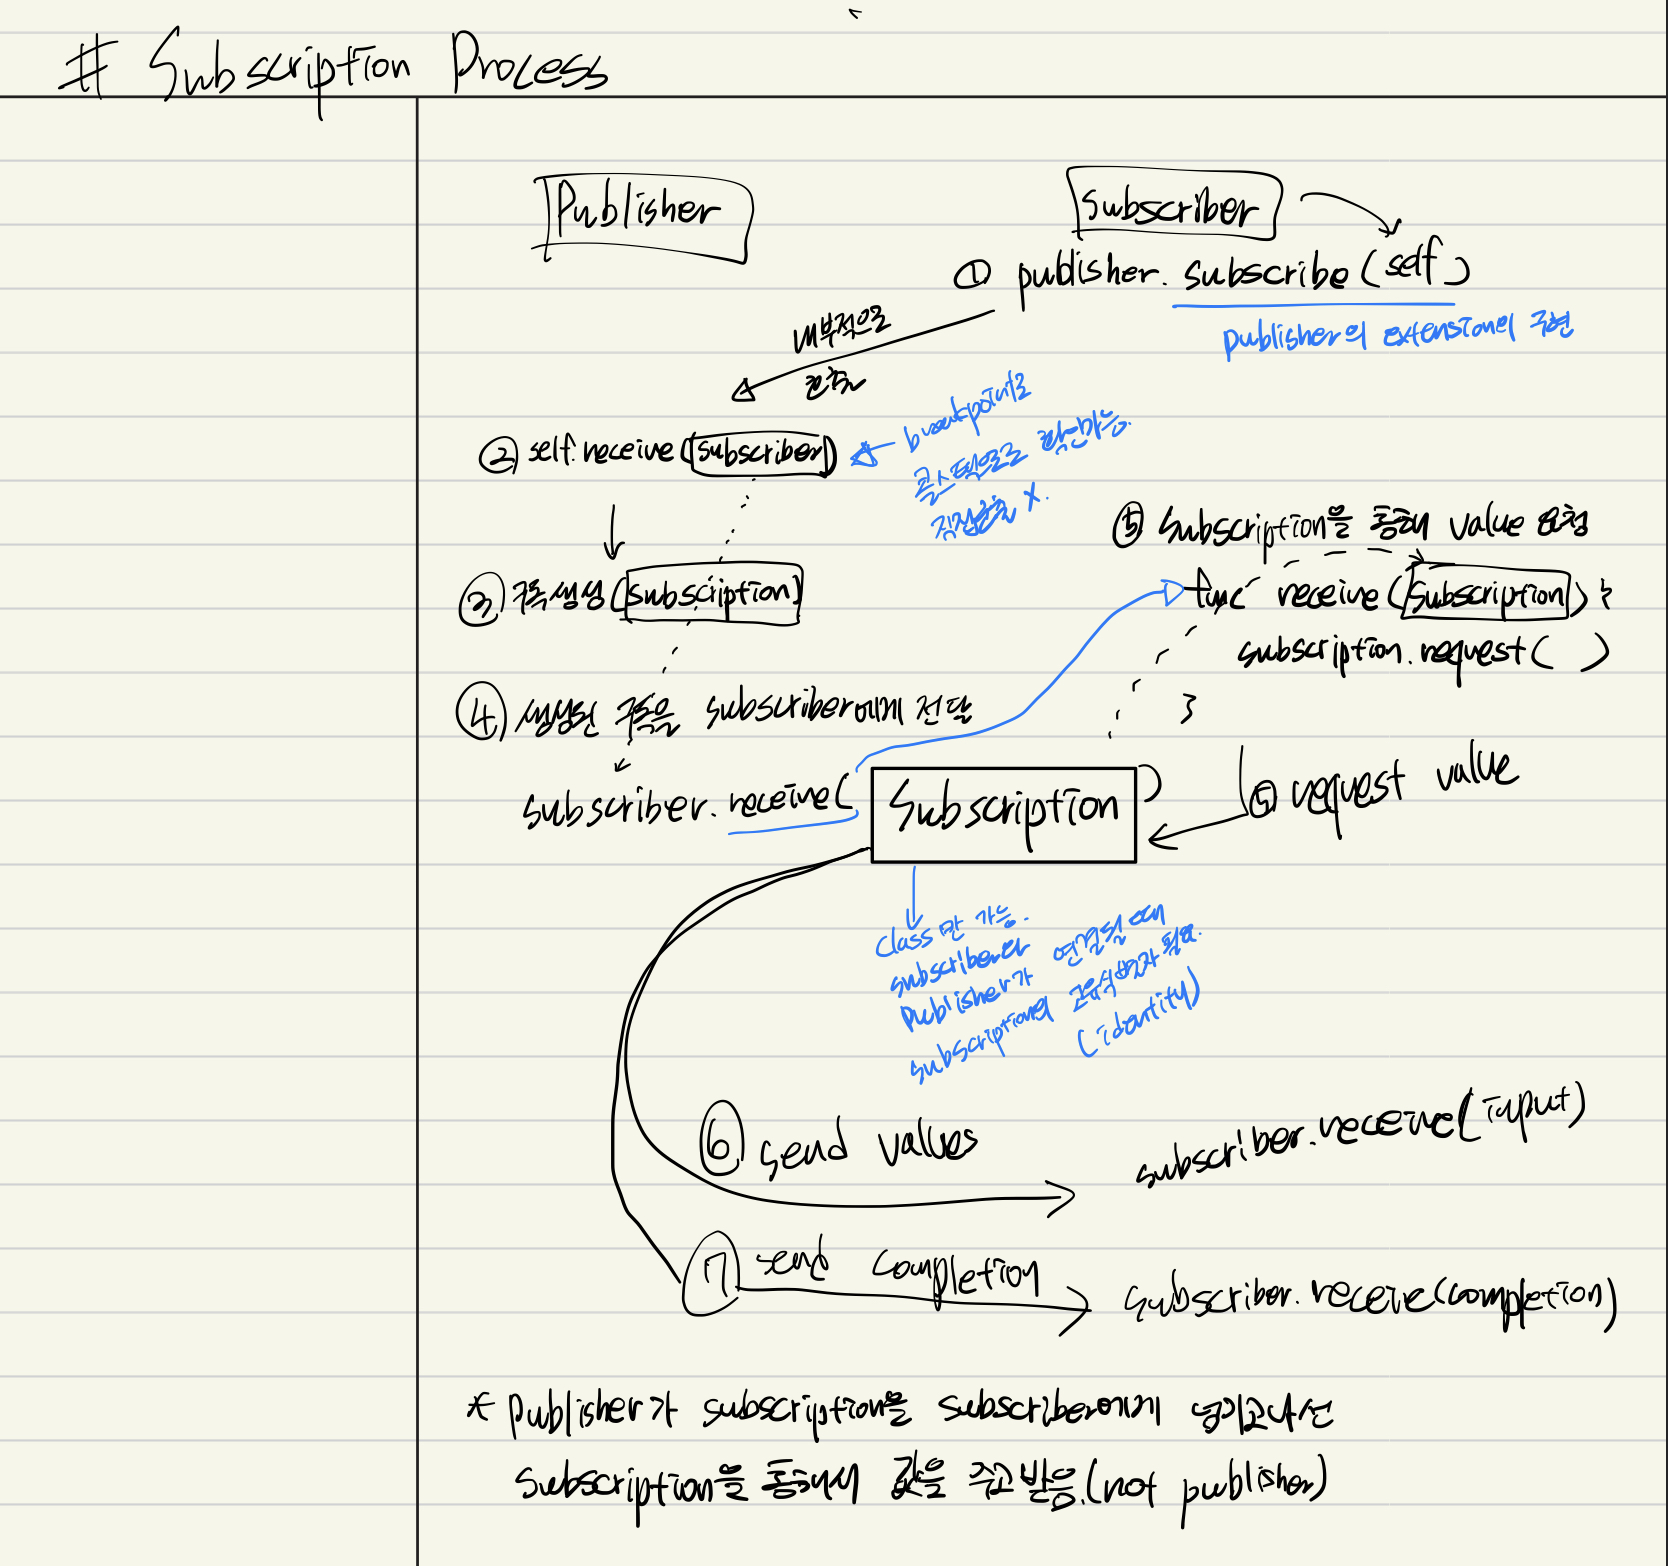 # Subscription Process
Publisher
Subscriber
① publisher.subscribe(self)
publisher의 extension에 구현
내부적으로
호출
② self.receive(subscriber)
breakpoint로
콜스택으로 확인가능.
직접호출 X.
③ 구독생성(subscription)
④ 생성된 구독을 subscriber에게 전달
subscriber.receive(Subscription)
⑤ Subscription을 통해 value 요청
func receive(Subscription) {
subscription.request( )
}
⑤ request value
Class만 가능.
subscriber와
Publisher가 연결될 때
subscription의 고유식별자 필요.
(identity)
⑥ send values
subscriber.receive(input)
⑦ send completion
subscriber.receive(completion)
* Publisher가 subscription을 subscriber에게 넘기고나선
Subscription을 통해서 값을 주고 받음.(not publisher)